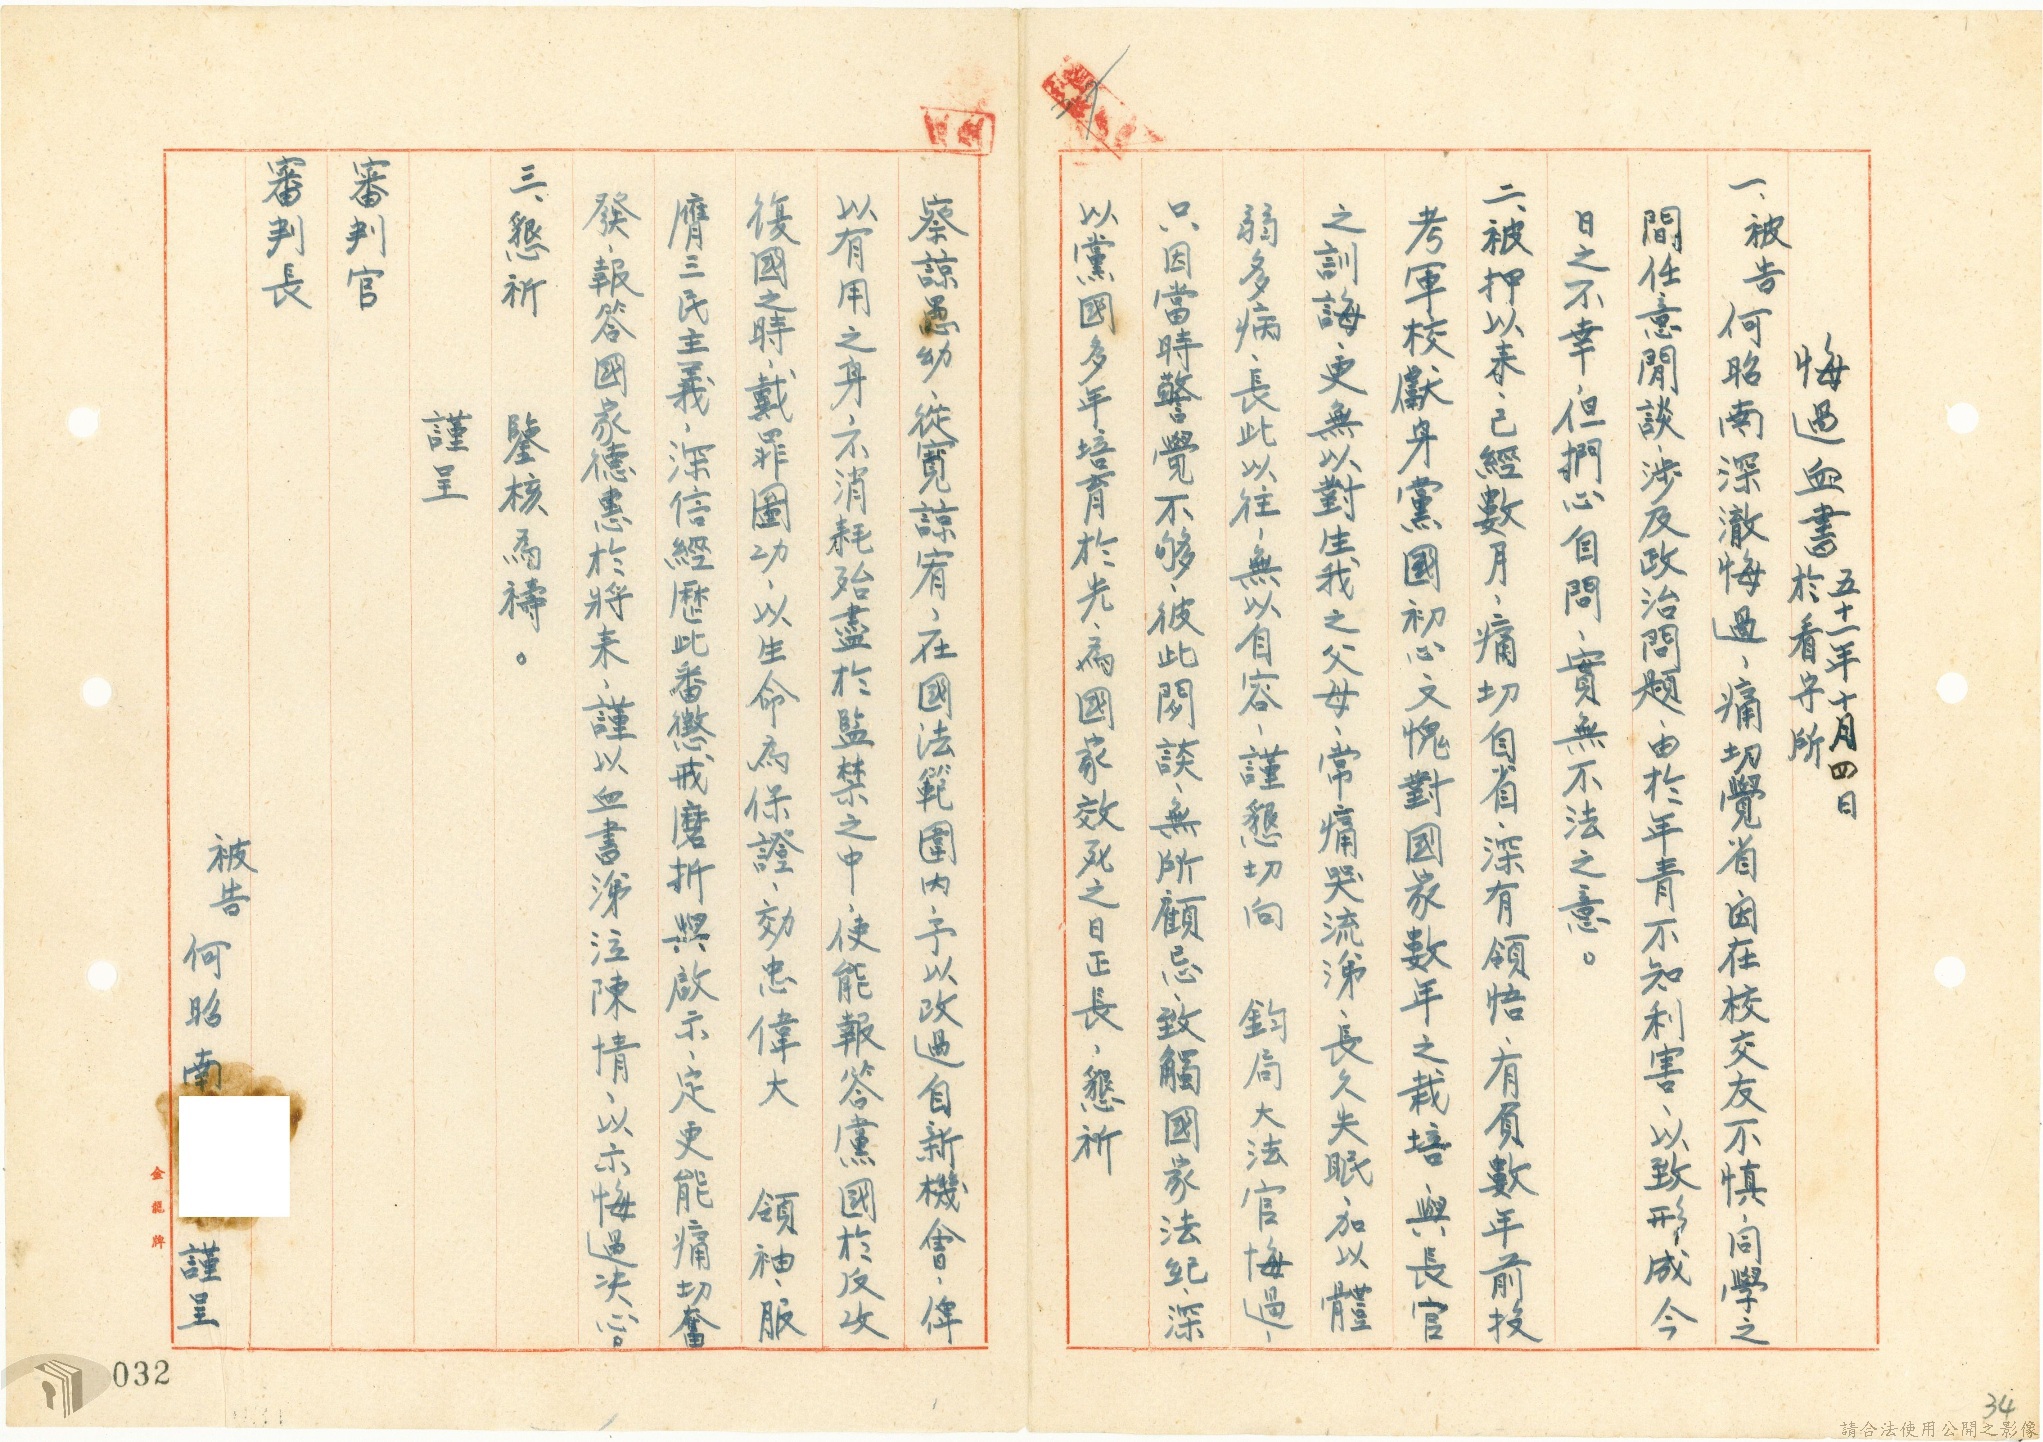 悔過血書
五十一年十月四日
於看守所
一、被告何昭南深澈悔過，痛切覺省因在校交友不慎，同學之
間任意閒談，涉及政治問題，由於年青不知利害，以致形成今
日之不幸，但捫心自問，實無不法之意。
二、被押以來，已經數月，痛切自省，深有領悟，有負數年前投
考軍校，獻身黨國初心，又愧對國家數年之栽培，與長官
之訓誨，更無以對生我之父母，常痛哭流涕，長久失眠，加以體
弱多病，長此以往，無以自容，謹懇切向 鈞局大法官悔過，
只因當時警覺不够，彼此閒談，無所顧忌，致觸國家法紀，深
以黨國多年培育於先，為國家效死之日正長，懇祈
察諒愚幼，從寬諒宥，在國法範圍內，予以改過自新機會，俾
以有用之身，不消耗殆盡於監禁之中，使能報答黨國於反攻
復國之時，戴罪圖功，以生命為保證，効忠偉大 領袖，服
膺三民主義，深信經歷此番懲戒磨折與啟示，定更能痛切奮
發，報答國家德惠於將來，謹以血書涕泣陳情，以示悔過決心。
三、懇祈 鑒核為禱。
謹呈
審判官
審判長
被告 何昭南 謹呈
金龍牌
032
34
請合法使用公開之影像